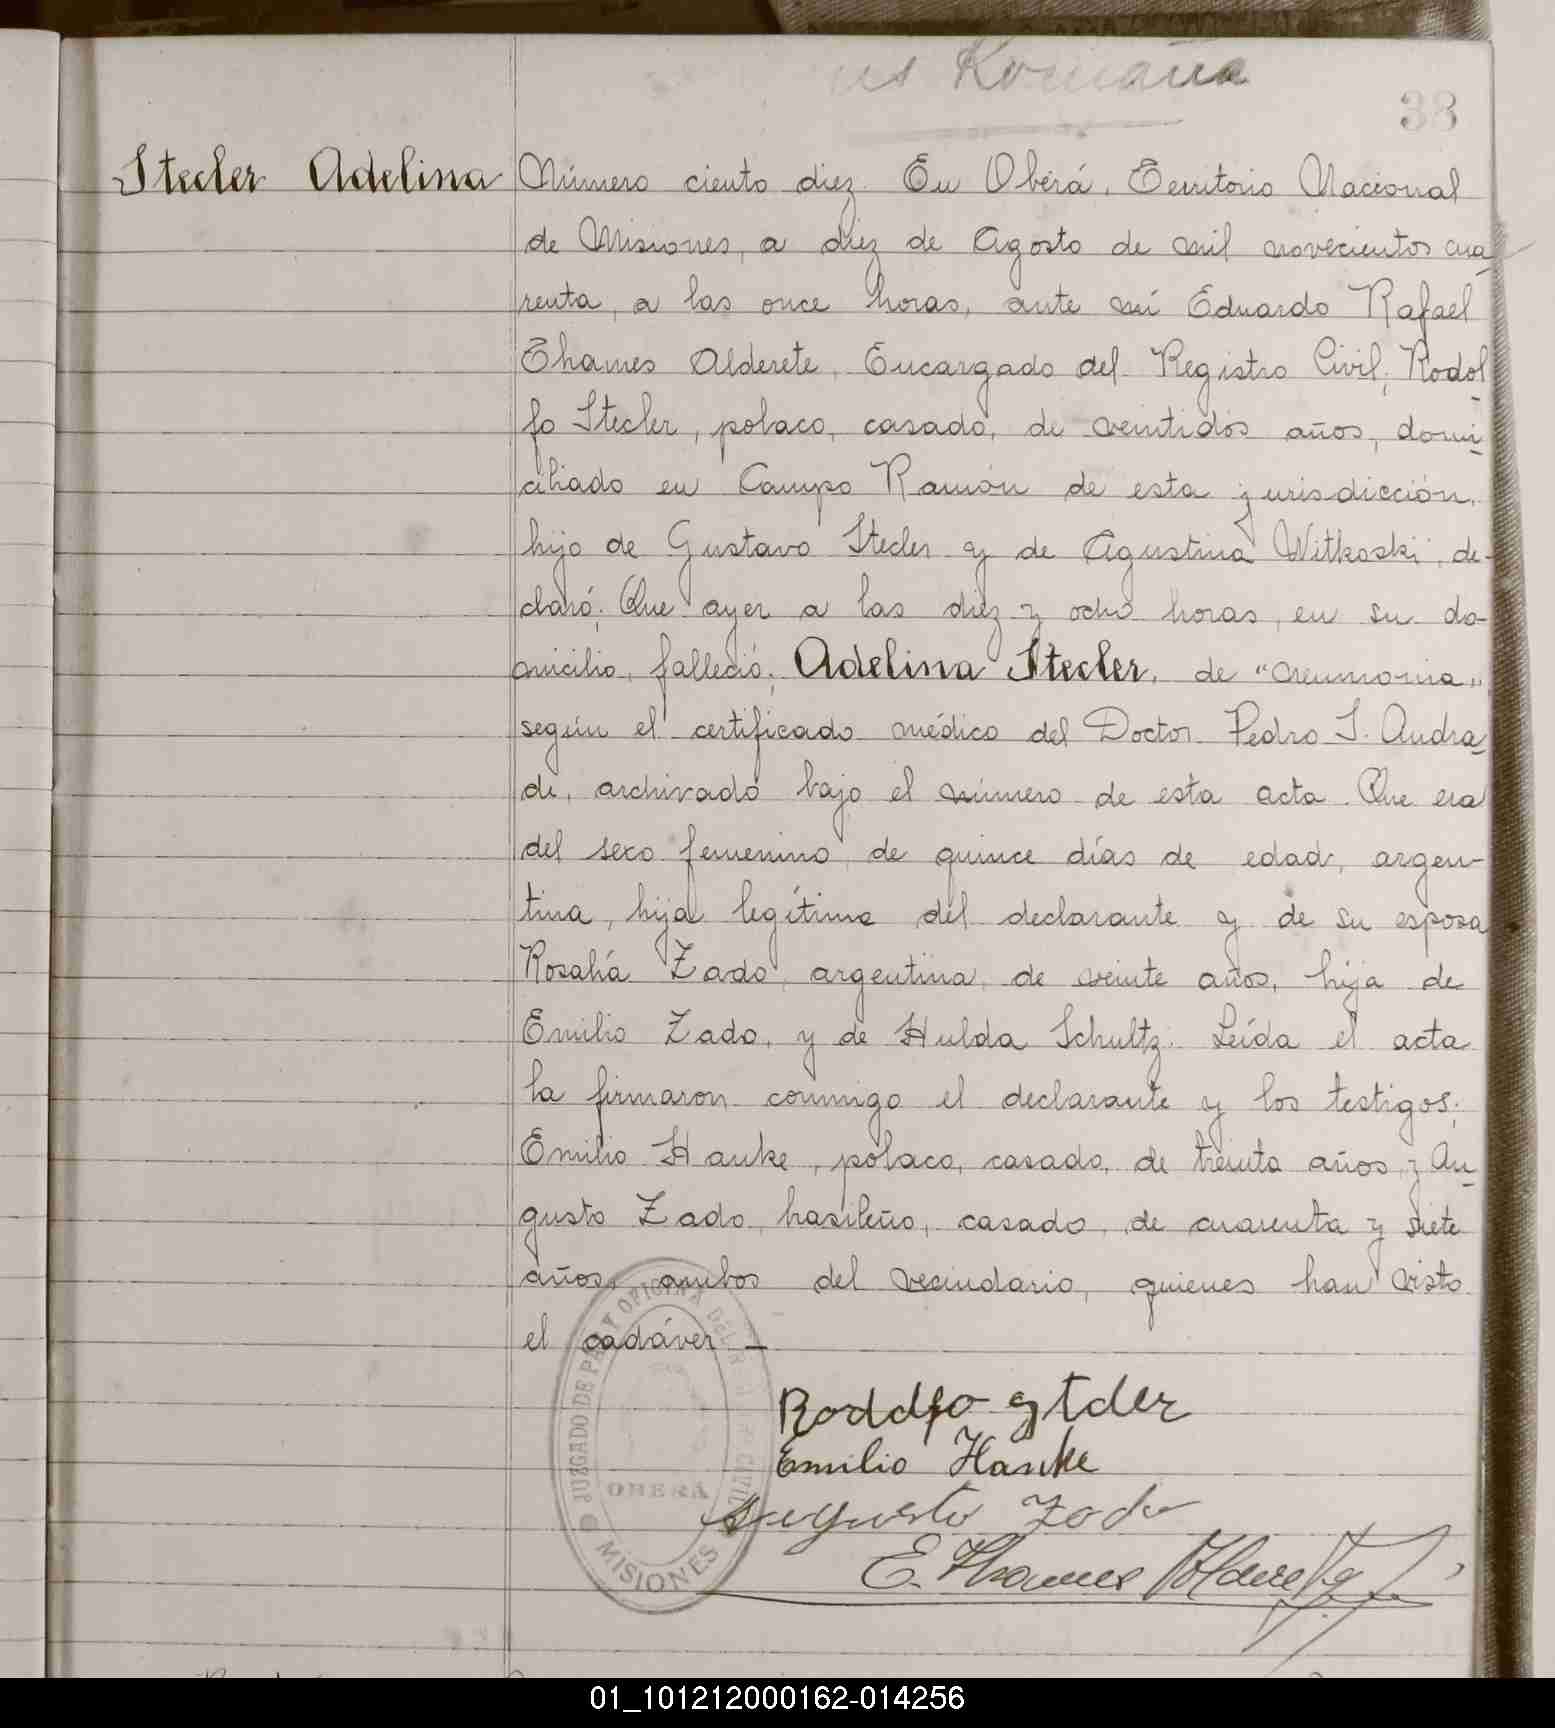 38
Stecler Adelina
Número ciento diez. En Oberá, Territorio Nacional
de Misiones, a diez de Agosto de mil novecientos cua-
renta, a las once horas, ante mí Eduardo Rafael
Thames Alderete, Encargado del Registro Civil; Rodol-
fo Stecler, polaco, casado, de veintidós años, domi-
ciliado en Campo Ramón de esta jurisdicción,
hijo de Gustavo Stecler y de Agustina Witkoski, de-
claró: Que ayer a las diez y ocho horas, en su do-
micilio, falleció; Adelina Stecler, de "neumonia",
según el certificado médico del Doctor Pedro J. Andra-
de, archivado bajo el número de esta acta. Que era
del sexo femenino, de quince días de edad, argen-
tina, hija legítima del declarante y de su esposa
Rosalía Zado, argentina, de veinte años, hija de
Emilio Zado, y de Hulda Schultz. Leída el acta
la firmaron conmigo el declarante y los testigos:
Emilio Hanke, polaco, casado, de treinta años, y Au-
gusto Zado, brasileño, casado, de cuarenta y siete
años, ambos del vecindario, quienes han visto
el cadáver.—
Emilio Hanke
Augusto Zado
E. Thames Alderete
JUZGADO DE PAZ Y OFICINA DEL CIVIL
OBERÁ
MISIONES
01_101212000162-014256